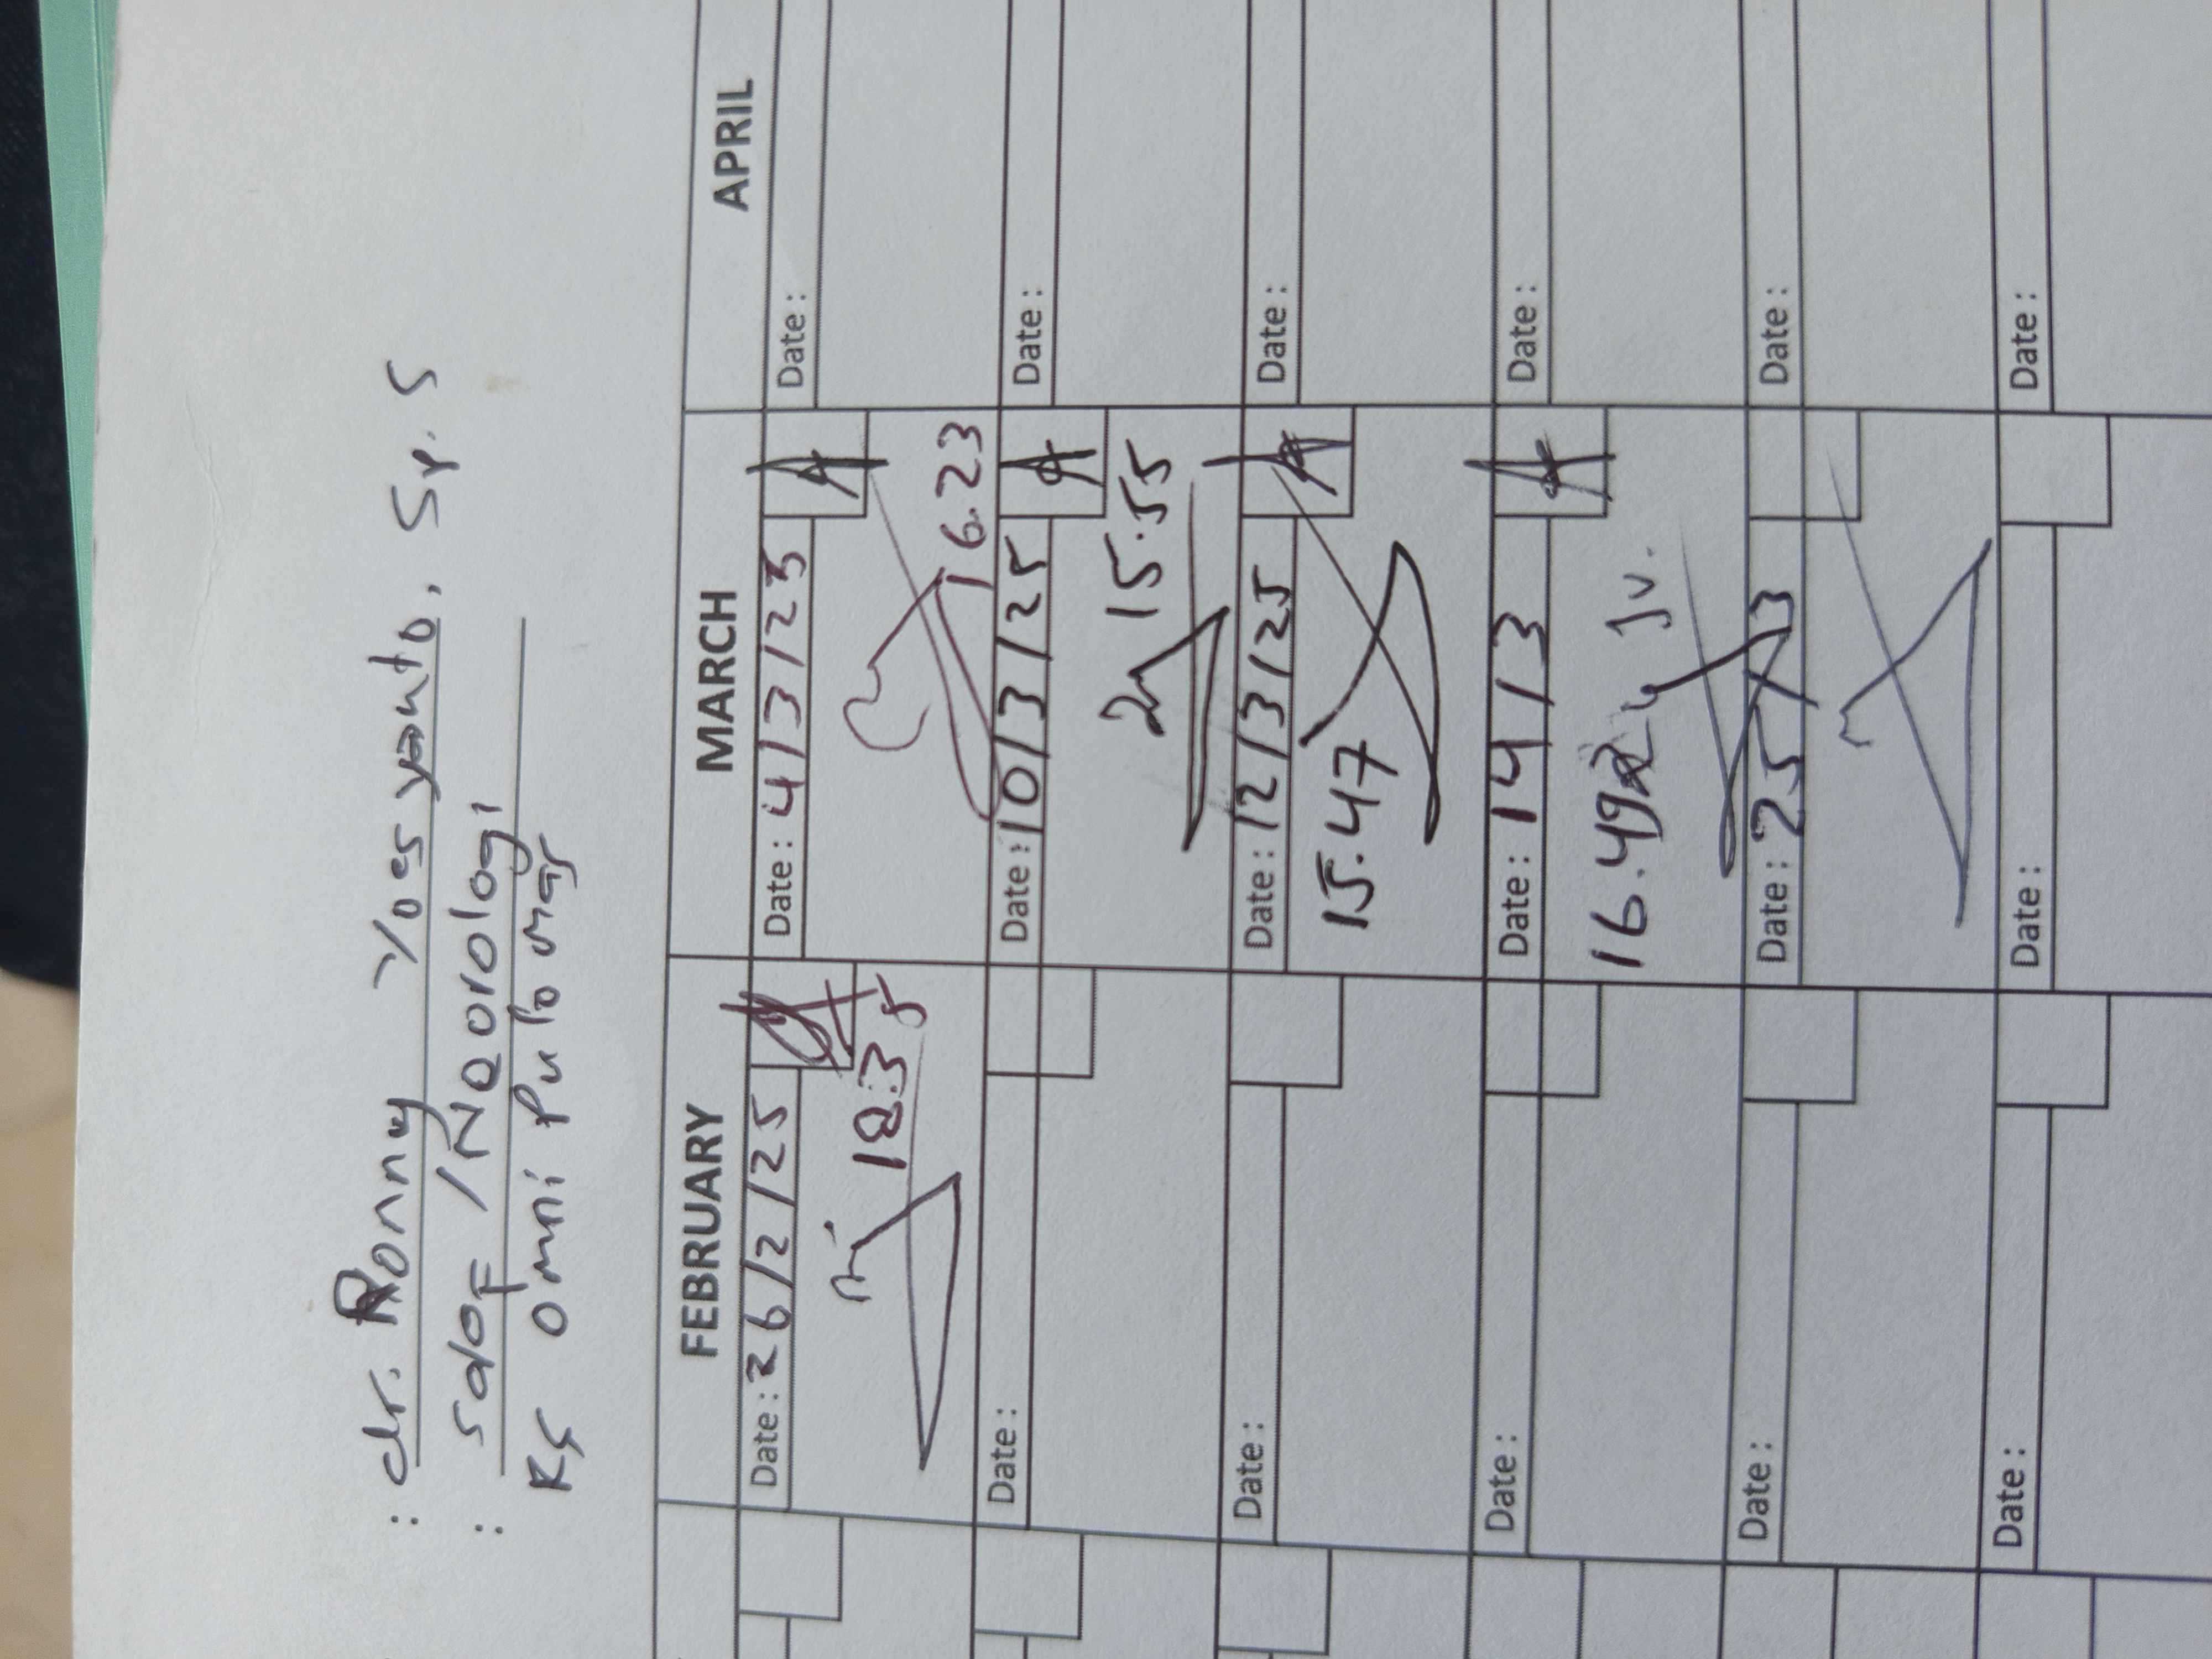 : dr. Ronny Yoesyanto, Sp. S
: sdof / Neorologi
RS Omni Pulo mas
FEBRUARY MARCH APRIL
Date : 26/2/25 Date : 4/3/25 Date :
18.35 16.23
Date : Date : 10/3/25 Date :
15.55
Date : Date : 12/3/25 Date :
15.47
Date : Date : 14/3 Date :
16.49 Jv.
Date : Date : 25/3 Date :
Date : Date : Date :